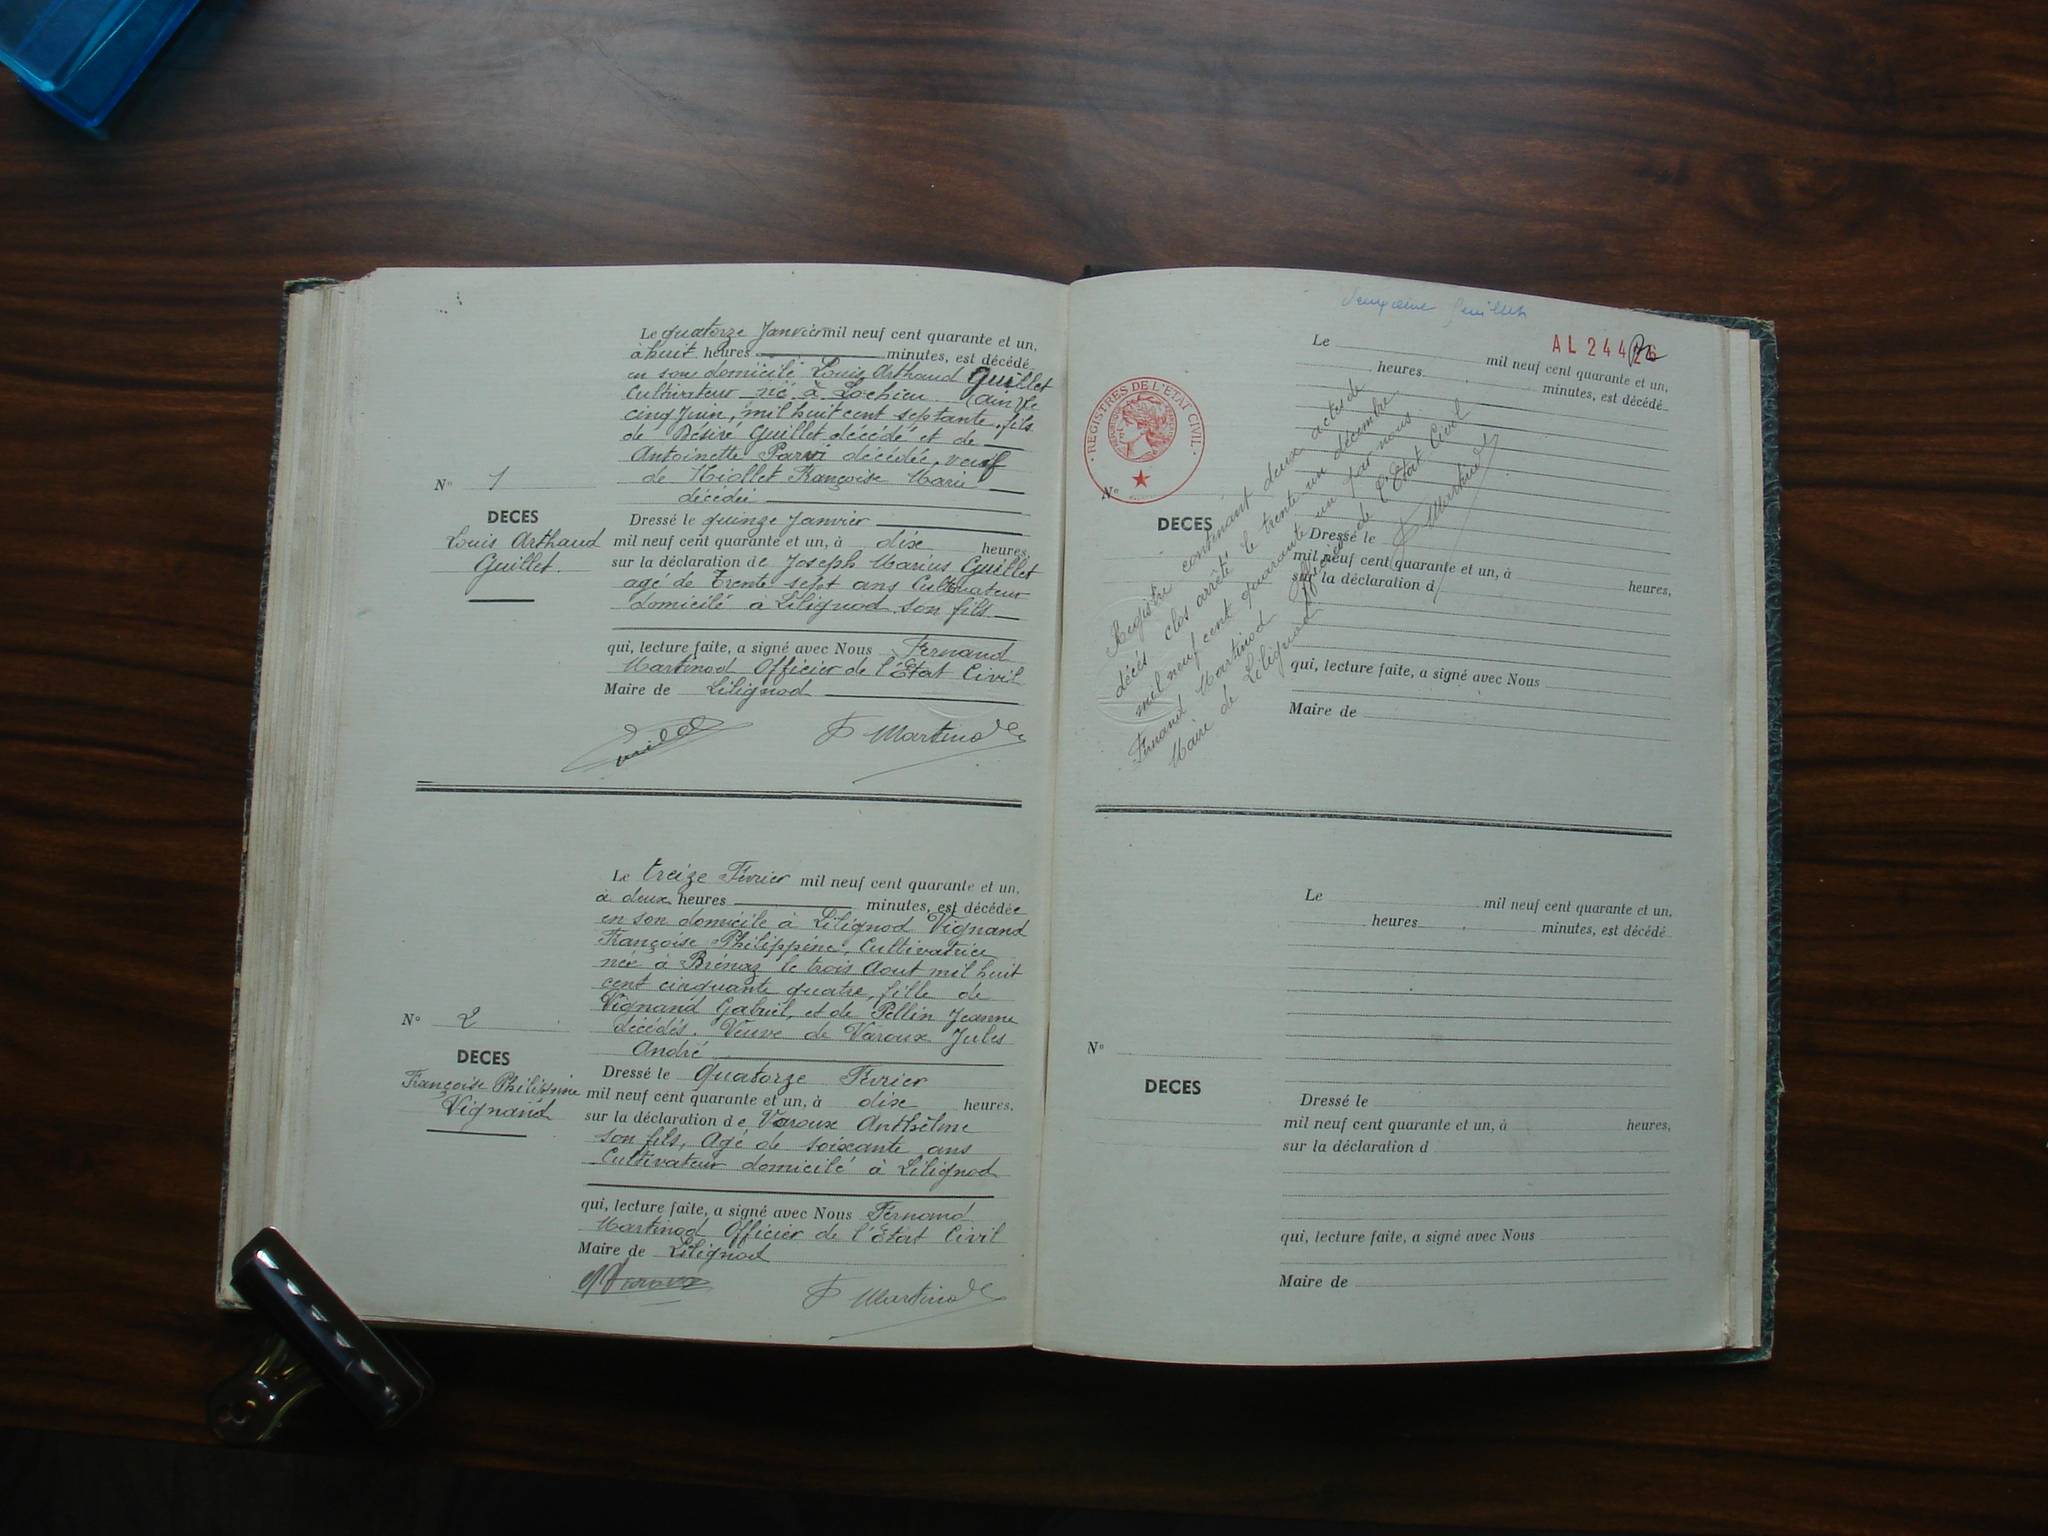 Le quatorze Janvier mil neuf cent quarante et un,
à huit heures minutes, est décédé
en son domicile Louis Arthaud Guillet
Cultivateur né à Lochieu (ain) le
cinq Juin, mil huit cent septante, fils
de Désiré Guillet décédé et de
Antoinette décédée, veuf
de Françoise Marie
décédée
N° 1
DECES
Louis Arthaud
Guillet.
Dressé le quinze Janvier
mil neuf cent quarante et un, à dix heures,
sur la déclaration de Joseph Marius Guillet
agé de Trente sept ans Cultivateur
domicilié à Lilignod son fils
qui, lecture faite, a signé avec Nous Fernand
Martinod Officier de l'Etat Civil
Maire de Lilignod
F Martinod
Le treize Février mil neuf cent quarante et un,
à deux heures minutes, est décédée
en son domicile à Lilignod Vignand
Françoise Philippine, Cultivatrice
née à Brénaz le trois Aout mil huit
cent cinquante quatre, fille de
Vignand Gabriel, et de Pellin Jeanne
décédés. Veuve de Varoux Jules
André
N° 2
DECES
Françoise Philippine
Vignand
Dressé le Quatorze Février
mil neuf cent quarante et un, à dix heures,
sur la déclaration de Varoux Anthelme
son fils, Agé de soixante ans
Cultivateur domicilié à Lilignod
qui, lecture faite, a signé avec Nous Fernand
Martinod Officier de l'Etat Civil
Maire de Lilignod
Varoux
F Martinod
deuxième feuillet
AL 244
REGISTRES DE L'ETAT CIVIL
Le mil neuf cent quarante et un,
heures minutes, est décédé
N°
DECES
Dressé le
mil neuf cent quarante et un, à heures,
sur la déclaration d
qui, lecture faite, a signé avec Nous
Maire de
Registre contenant deux actes de
décès clos arrêté le trente un décembre
mil neuf cent quarante un par nous
Fernand Martinod Officier de l'Etat Civil
Maire de Lilignod
F Martinod
Le mil neuf cent quarante et un,
heures minutes, est décédé
N°
DECES
Dressé le
mil neuf cent quarante et un, à heures,
sur la déclaration d
qui, lecture faite, a signé avec Nous
Maire de